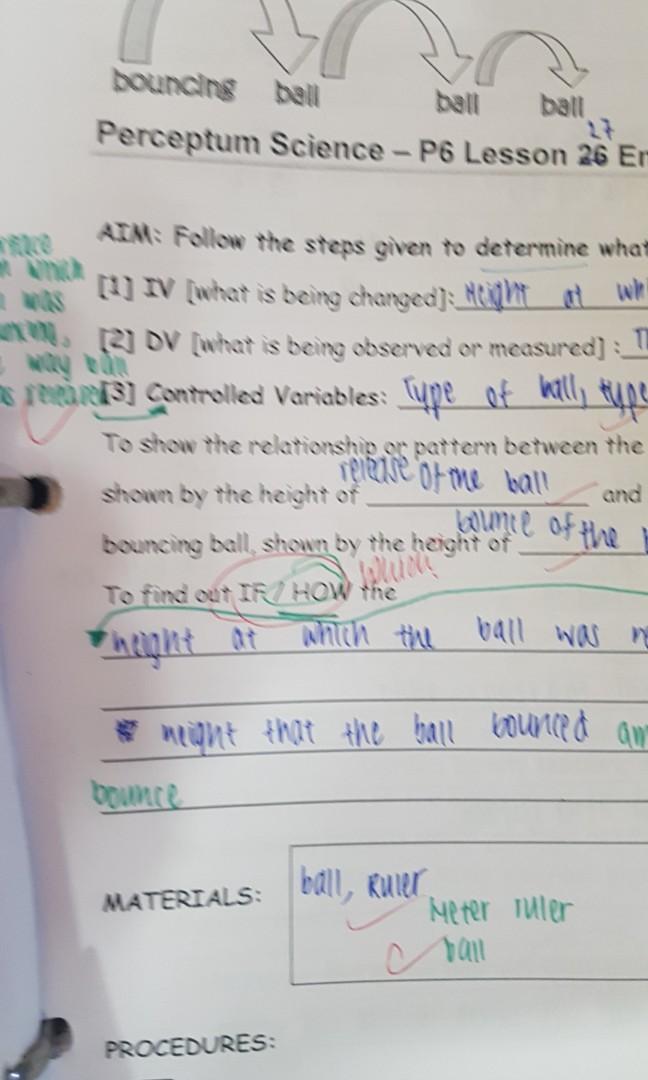 bouncing ball ball ball
27
Perceptum Science – P6 Lesson 26 En
AIM: Follow the steps given to determine what
[1] IV [what is being changed]: Height at wh
[2] DV [what is being observed or measured] :
[3] Controlled Variables: Type of ball, type
which
was
way
To show the relationship or pattern between the
release of the ball
shown by the height of and
bounce of the
bouncing ball, shown by the height of
which
To find out IF / HOW the
height at which the ball was
height that the ball bounced
bounce
MATERIALS: ball, Ruler
Meter ruler
ball
PROCEDURES: